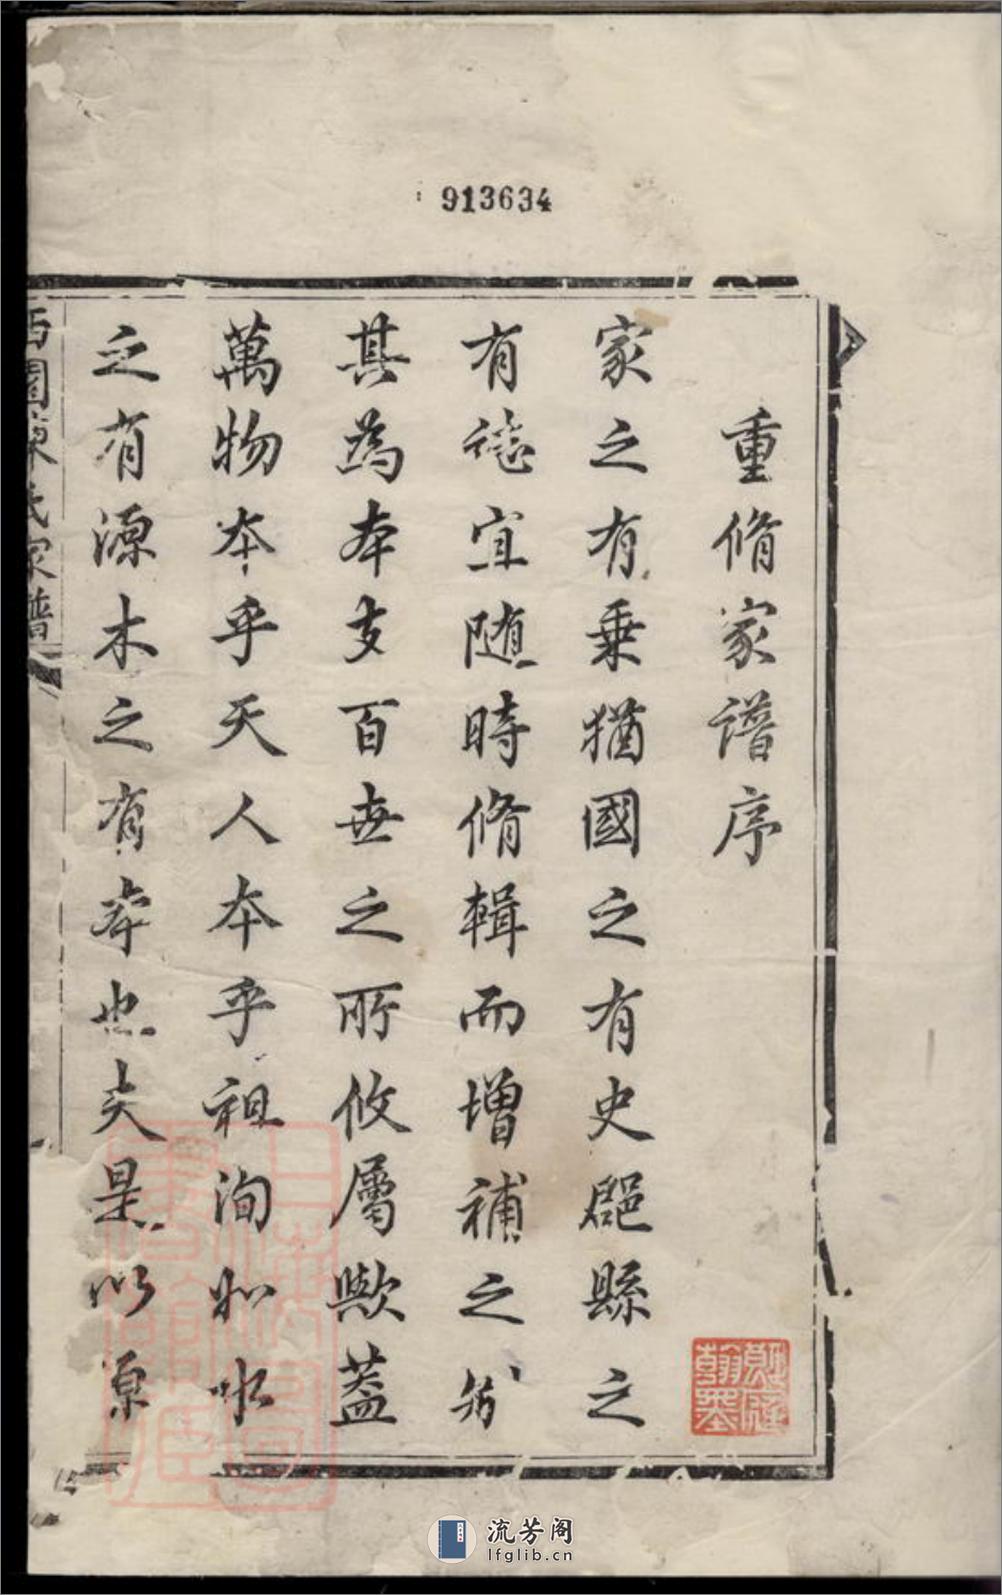 913634
重脩家譜序
家之有乗猶國之有史郡縣之
有誌宜随時脩輯而增補之矧
其為本支百世之所攸屬歟蓋
萬物本乎天人本乎祖洵如水
之有源木之有本也夫是以原
西園陳氏家譜
翰墨
流芳阁
lfglib.cn